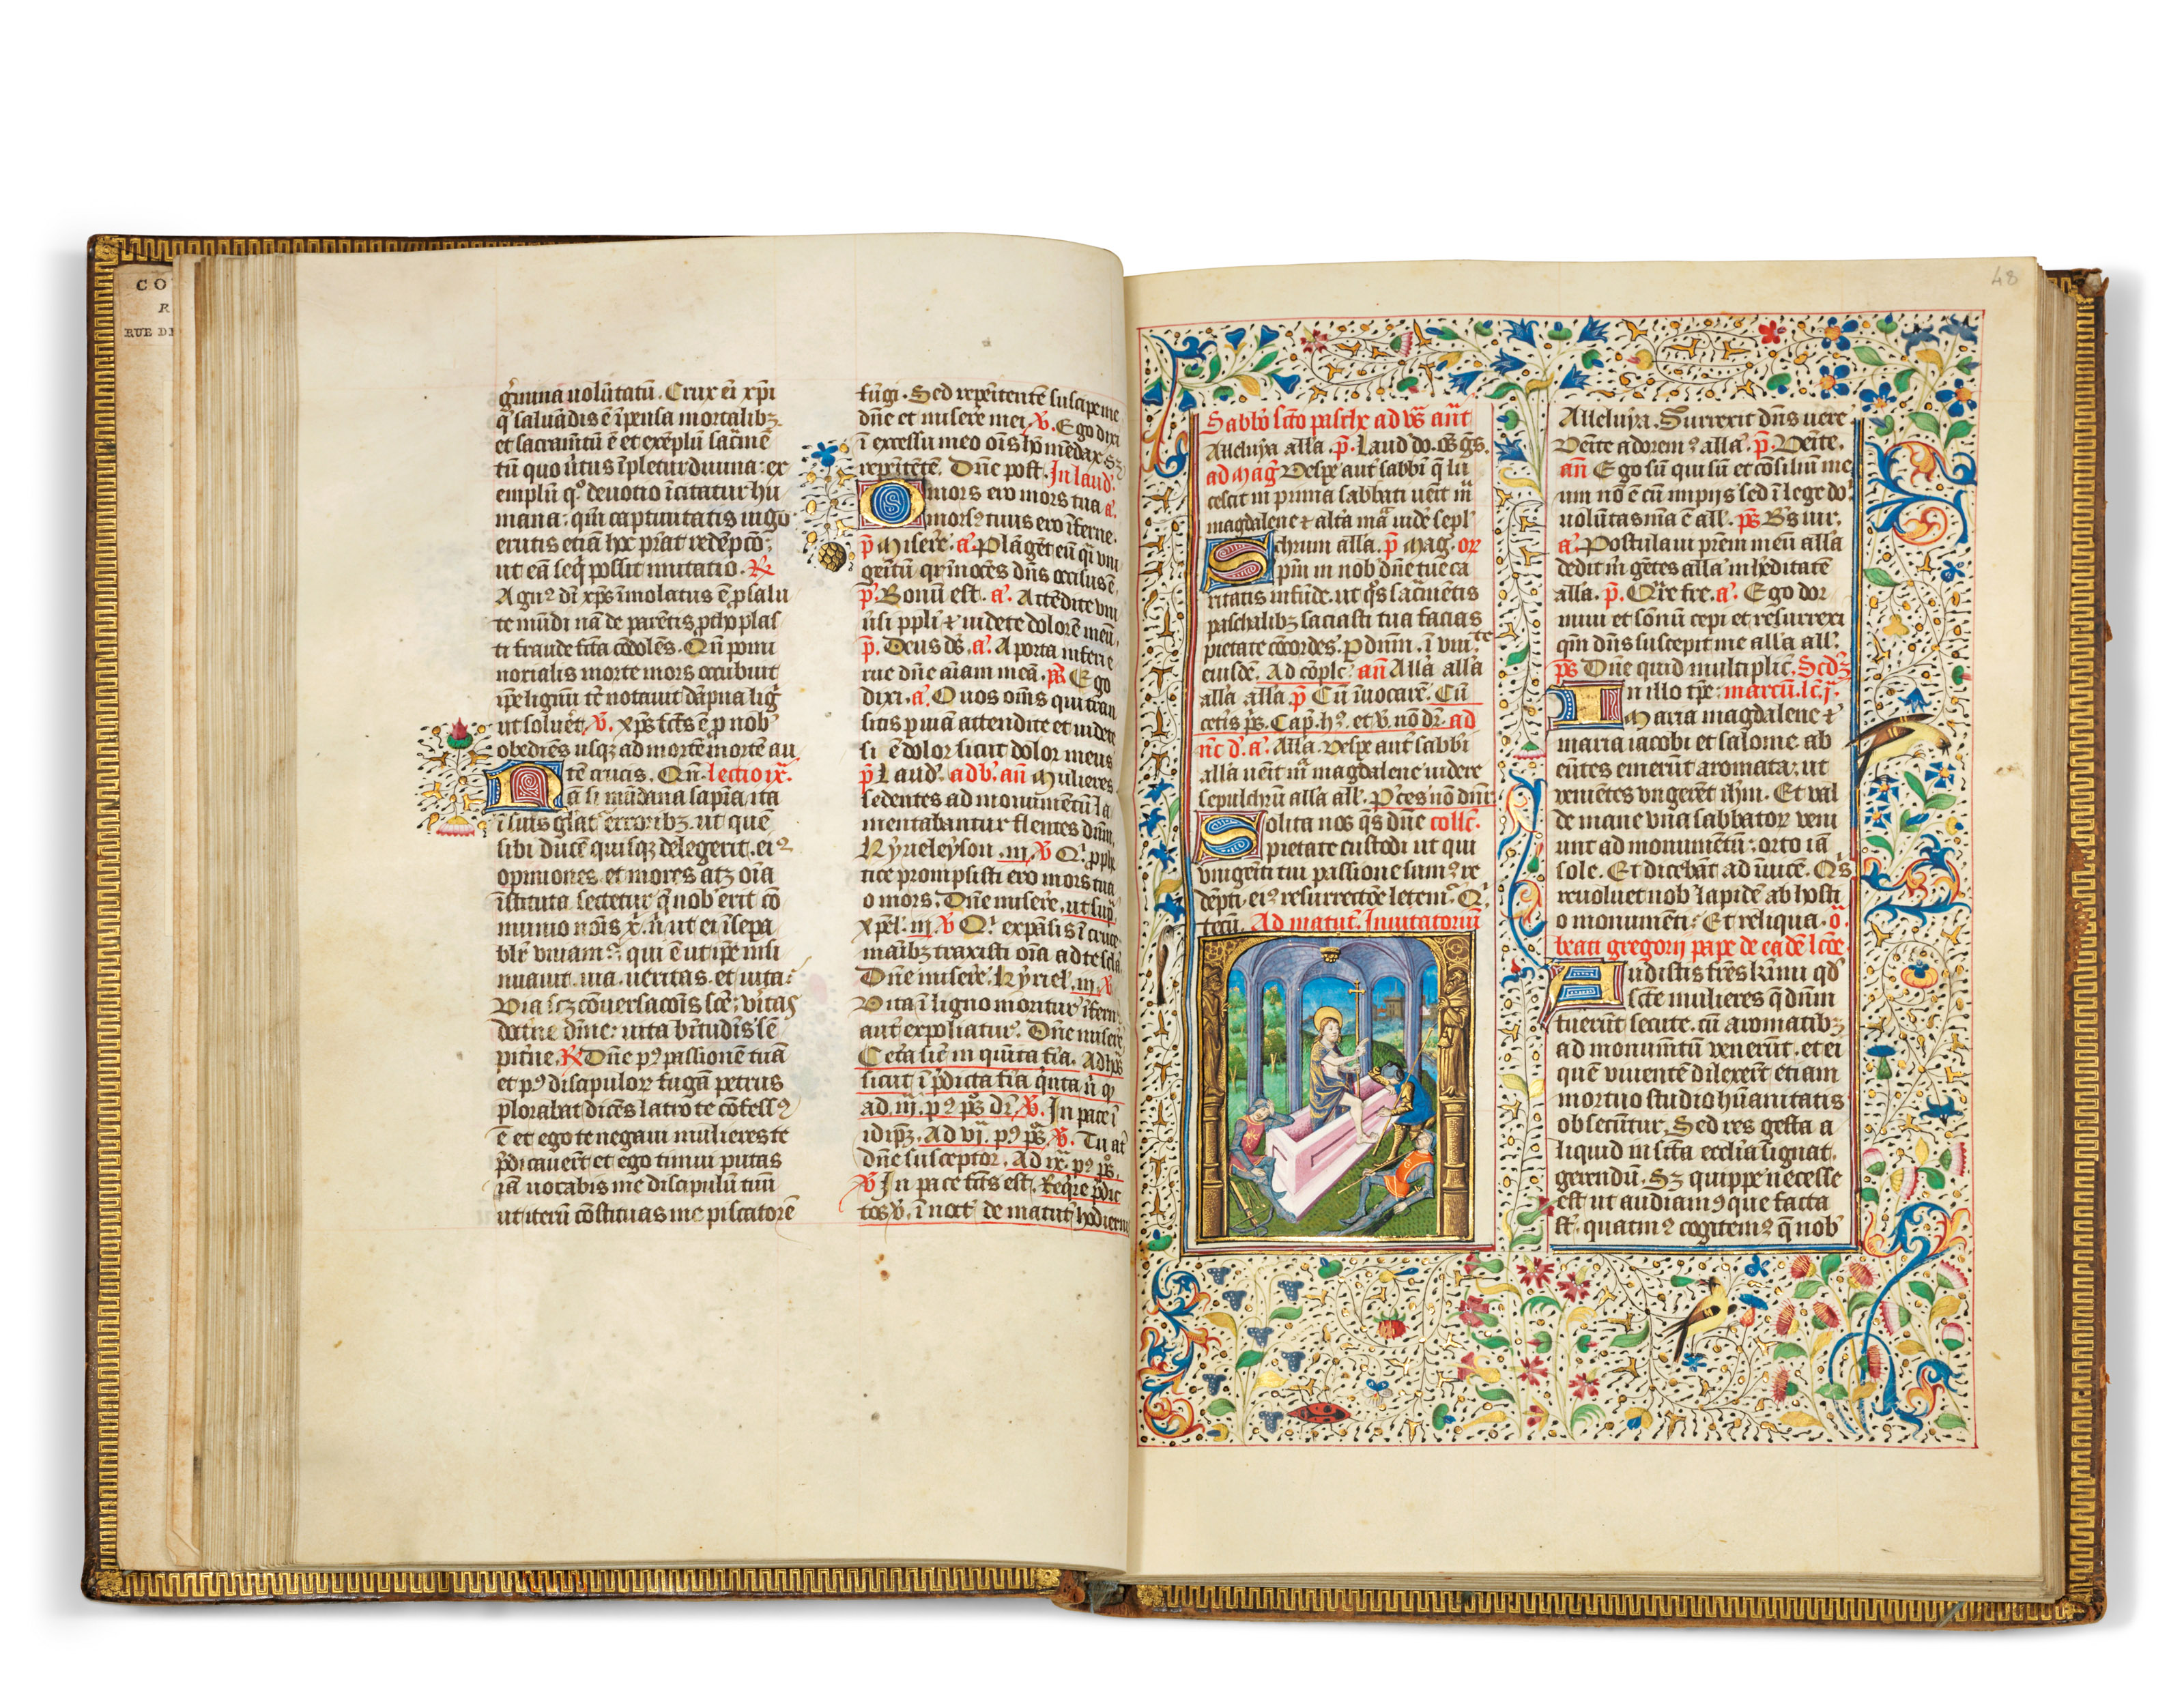 CO
R
RUE DE
48
gͥmina uolūtatū. Crux eī xp̄i
qͣ saluādis ē īpensa mortalibꝫ
et sacramtū ē et exēplū sac̄mē
tū quo ūtus īpletur diuina: ex
emplū qͦ deuotio īcitatur hu
mana: qm̄ captiuitatis iugo
erutis etiā hoc p̄stat redēpco;
ut eā seqͥ possit imitatio. ℟
Agnꝰ dī xp̄s īmolatus ē ꝓ salu
te mūdi nā de parētis ꝓthoplas
ti fraude fcā cōdolēs. Qn̄ pomi
noxialis morte mors occubuit
ip̄e lignū tc̄ notauit dāpna ligͥ
ut soluēt. ℣. xp̄s fcūs ē ꝓ nob̄
obediēs usqꝫ ad mortē mortē au
tē crucis. Qn̄. lectio ix.
Nā si mūdana sapīa ita
ī suis gl̄at̄ erroribꝫ. ut que
sibi ducē quisqꝫ delegerit. eiꝰ
opiniones et mores atqꝫ oīa
īstituta sectetur qͣ nob̄ erit cō
munio nōis x̄. n̄ ut ei īsepa
bl̄r vniamꝰ: qui ē ut ip̄e insi
nuauit. uia. ueritas. et uita:
Via scꝫ cōuersacōis scē: vitas
doctne diuīe: uita btitudīs sē
pitne. ℟ Dn̄e pꝰ passionē tuā
et pꝰ discipuloꝝ fugā petrus
plorabat dicēs latro te cōfessꝰ
ē et ego te negaui mulieres te
p̄dicauer̄t et ego timui putas
iā uocabis me discipulū tuū
ut iterū cōstituas me piscatorē
fūgi. Sed rep̄eitentē suscipe me
dn̄e et miser̄e mei. ℣. Ego dixi
ī excessu meo oīs hō mēdax. Sꝫ
rep̄eitētē. Dn̄e post. In laud̓.
O mors ero mors tua a.
morsꝰ tuus ero īferne.
p̄ Miser̄e. a. Plāgēt eū qͣ vni
genitū qꝛ īnocēs dn̄s occisus ē.
p̄. Bonū est. a. Attēdite vni
ūsi ppl̄i ⁊ uidete dolorē meū.
p̄. Deus ds̄. a. A porta infe
rie dn̄e aīam meā. p̄s Ego
dixi. a. O uos om̄s qui trān
sitis ꝑ uiā attendite et uidete
si ē dolor sicut dolor meus
p̄ Laud̓. ad b̄. an̄ Mulieres
sedentes ad monumētū la
mentabantur flentes dnm̄.
Kyrieleyson. iij. ℣ Qͥ ꝓphe
tice prompsisti ero mors tua
o mors. Dn̄e miser̄e. ut supͣ.
xp̄el. iij. ℣ Qͥ expāsis ī cruce
manibꝫ traxisti oīa ad te scl̄a
Dn̄e miser̄e. Kyriel. iij. ℣.
Vita ī ligno moritur īfern̄
aut̄ expoliatur. Dn̄e miser̄e.
Cetͣa sic̄ in quīta fīa. Ad hꝭ
sicut ī p̄dicta fīa qͥnta n̄ qꝫ
ad iij. pꝰ pꝭ dr̄ ℣. In pace ī
idip̄m. Ad vj. pꝰ p̄s. ℣. Tu at̄
dn̄e susceptor. Ad ix. pꝰ p̄s.
℣ In pace fcūs est. Req̄re p̄dic
tos ℣. ī noct̄ de matut̄ hodiern̄
Sabb̄o sc̄to pasche ad vs̄ ant̄
Alleluya alla. p̄. Laud do. oēs gēs.
ad mag̓ Vesp̄e aut̄ sabbi q̄ lu
cescit in prima sabbati uēit m̄
magdalene ⁊ altͣa mͣ uidē sepl̄
Schrum alla. p̄ Mag̓. or
Spm̄ in nob̄ dn̄e tue ca
ritatis infūde. ut qͦs sac̄mētis
paschalibꝫ saciasti tua facias
pietate cōcordes. P dnm̄. ī vnit̄te
eiusdē. Ad cōplc̄. an̄ Alla alla
alla alla. p̄ Cū īuocarē. Cū
cetis p̄s. Cap̄. hꝰ. et ℣. nō dr̄. ad
nc̄ d̓. a. Alla. Vesp̄e aut̄ sabbi
alla uēit mͣ magdalene uidere
sepulchrū alla all̄. Pces nō dnr̄
Solita nos qͦs dn̄e collc̄.
pietate custodi ut qui
vnigeniti tui passione sumꝰ re
dēpti. eiꝰ resurrectōe letem̄. Qͥ
tecū. Ad matut̄. Inuitatoriū
Alleluya. Surrexit dn̄s uere
Venite adoremꝰ alla. p̄. Venite.
an̄ Ego sū qui sū et cōsiliū me
um nō ē cū impijs sed ī lege do
uolūtas mā ē all̄. p̄s Bs̄ uir.
a. Postulaui prēm meū alla
dedit m̄ gētes alla in hēditatē
alla. p̄. Qͣre fre. a. Ego dor
miui et sōnū cepi et resurrexi
qm̄ dn̄s suscepit me alla all̄.
p̄s Dn̄e quid multiplic̄. Scd̄ꝫ
In illo tp̄e: marcū. lc̄. j.
Maria magdalene ⁊
maria iacobi et salome ab
eūtes emerūt aromata: ut
venietes vngerēt ih̄m. Et val
de mane vna sabbatoꝝ veni
unt ad monumētū: orto iā
sole. Et dicebāt ad īuicē. Qͥs
reuoluet nob̄ lapidē ab hosti
o monumēti: Et reliqua. o.
beati gregorii pape de eadē lcc̄e
Audistis frēs kīmi qd̄
sctē mulieres q̄ dnm̄
fuerūt secute. cū aromatibꝫ
ad monumtū venerūt. et ei
quē viuentē dilexer̄t etiam
mortuo studio hūanitatis
obsecūtur. Sed res gesta a
liquid in sctā ecclīa signat
gerendū. Sꝫ quippe necesse
est ut audiamꝰ que facta
st̄. quatinꝰ cogitemꝰ q̄ nob̄